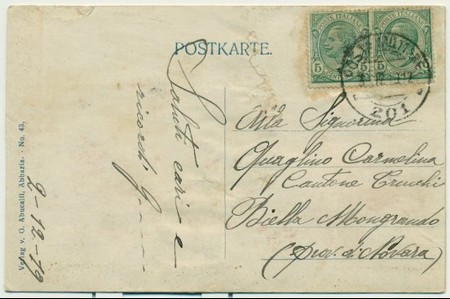 POSTKARTE.
POSTE ITALIANE
5 5
POSTA MILITARE
201
Saluti cari e
ricordi G
2-12-19
Verlag v. O. Abucaill, Abbazia. - No. 43.
Alla Signorina
Quaglino Carmelina
Cantone Truchi
Biella Mongrando
(prov. di Novara)